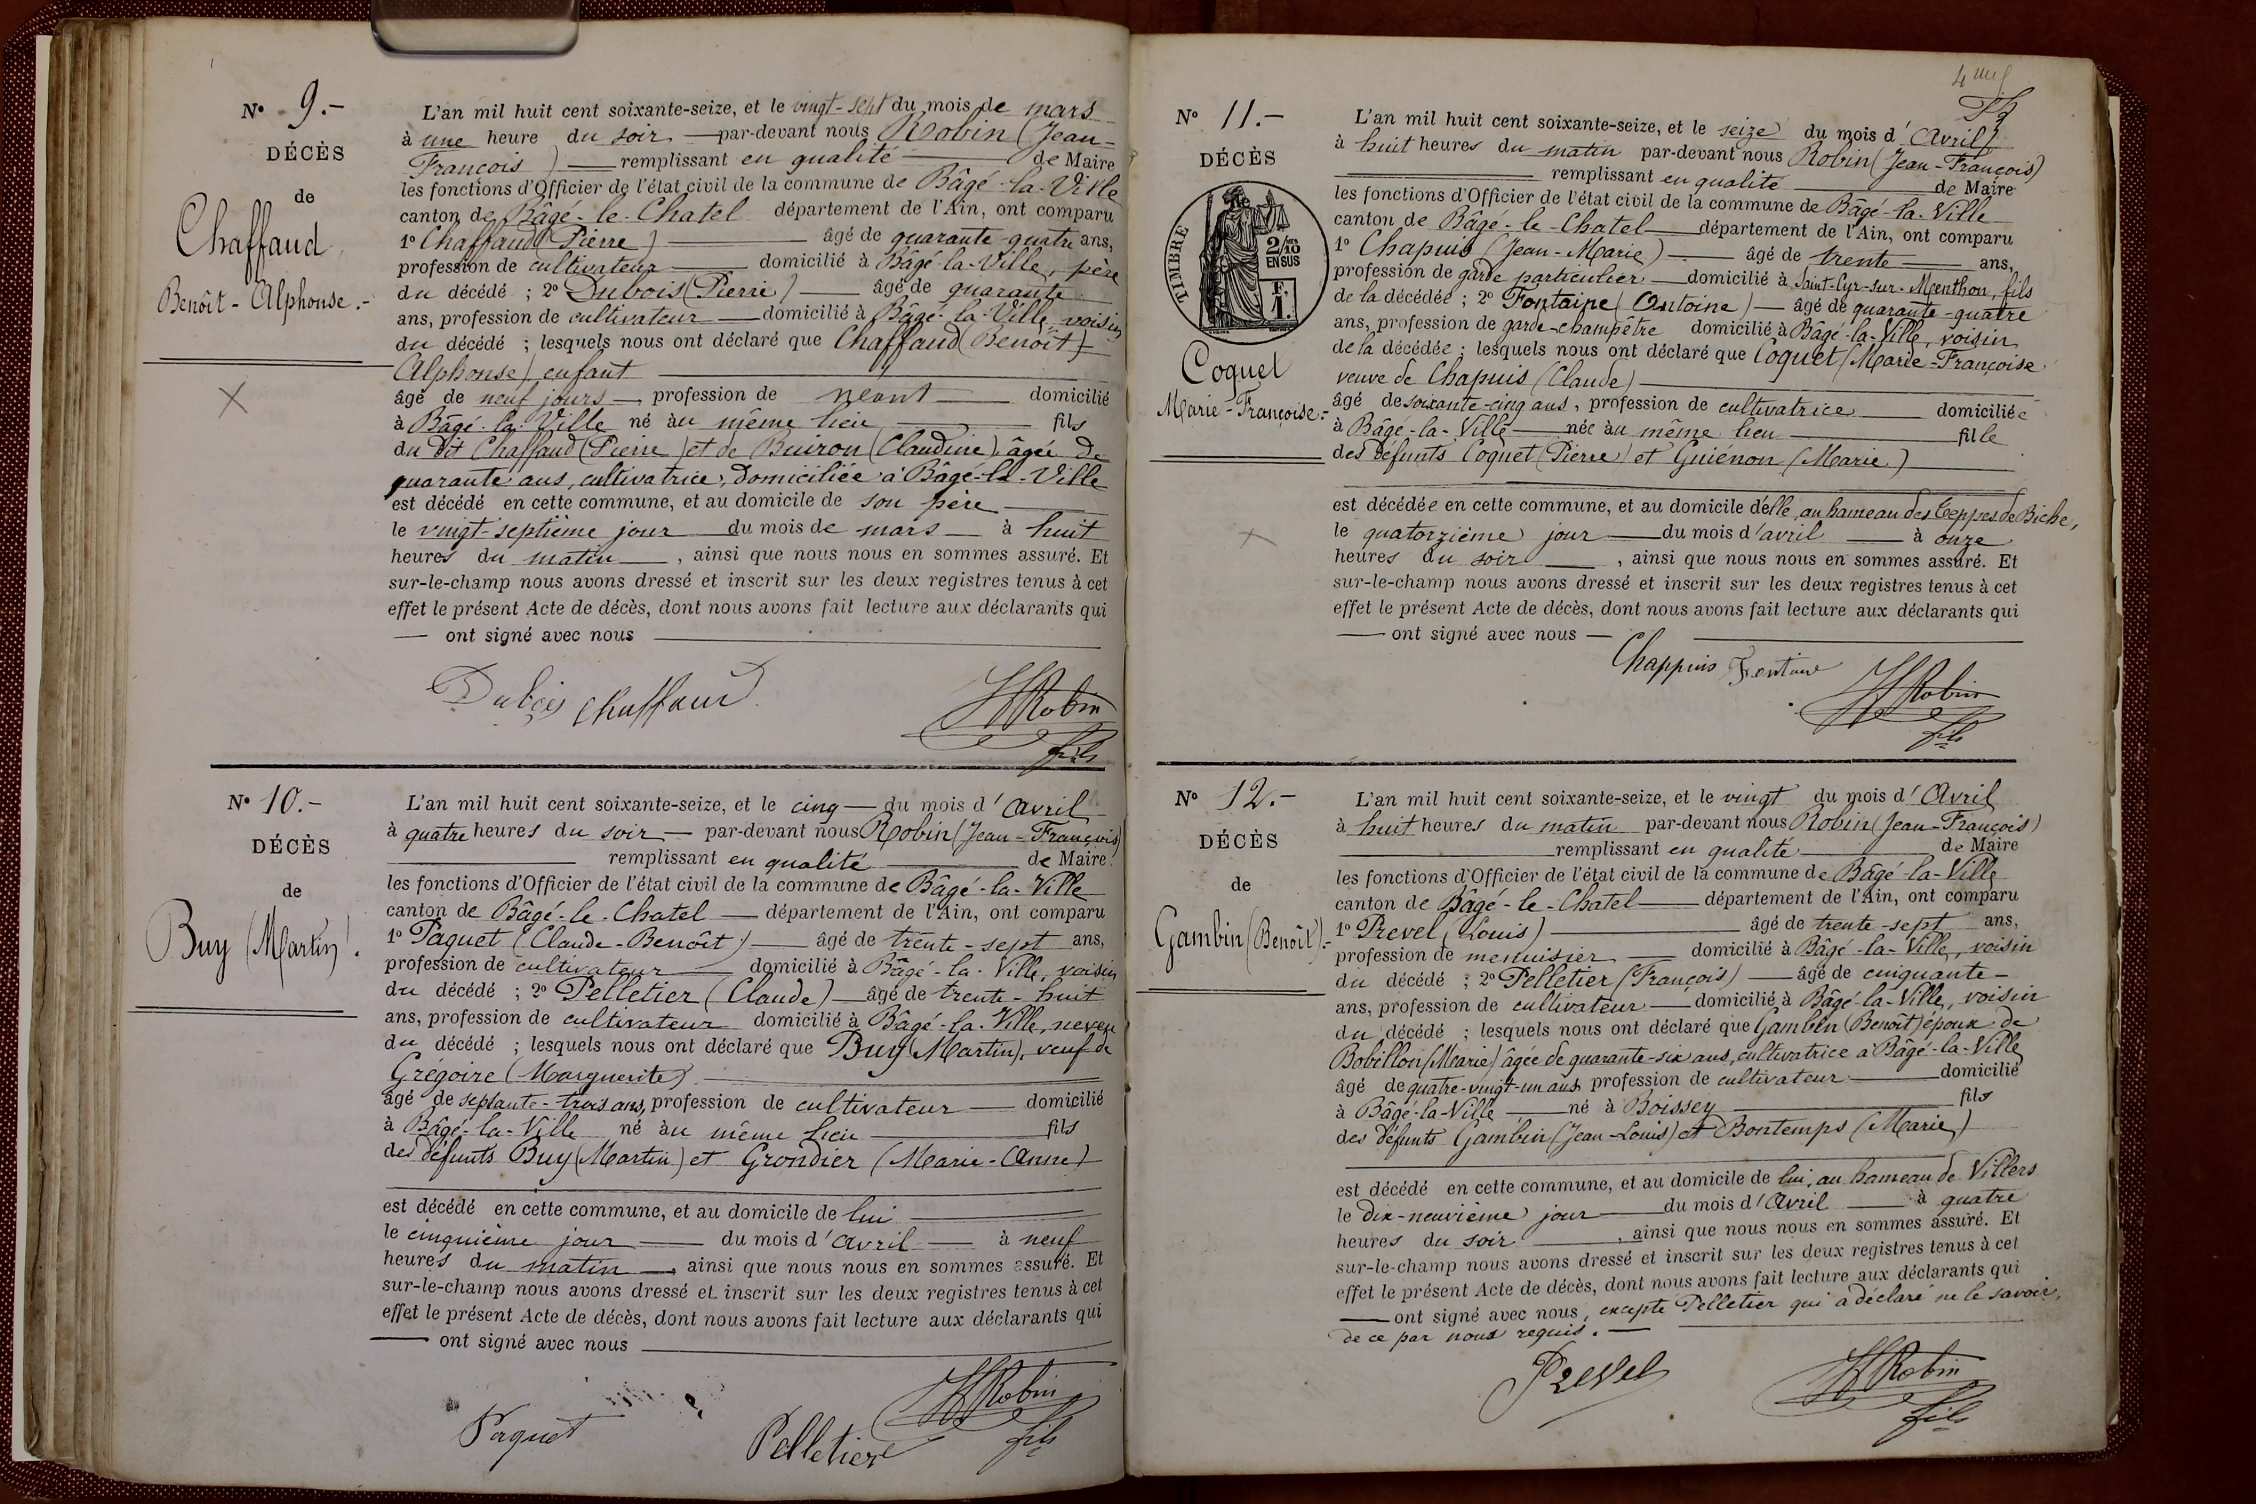 N° 9.-
DÉCÈS
de
Chaffaud
Benoît - Alphonse.-
L'an mil huit cent soixante-seize, et le vingt-sept du mois de mars
à une heure du soir par-devant nous Robin (Jean-
François) remplissant en qualité de Maire
les fonctions d'Officier de l'état civil de la commune de Bâgé-la-Ville
canton de Bâgé-le-Chatel département de l'Ain, ont comparu
1° Chaffaud (Pierre) âgé de quarante-quatre ans,
profession de cultivateur domicilié à Bâgé-la-Ville, père
du décédé ; 2° Dubois (Pierre) âgé de quarante
ans, profession de cultivateur domicilié à Bâgé-la-Ville, voisin
du décédé ; lesquels nous ont déclaré que Chaffaud (Benoît)
Alphonse) enfant
âgé de neuf jours profession de néant domicilié
à Bâgé-la-Ville né au même lieu fils
du dit Chaffaud (Pierre) et de Buiron (Claudine) âgée de
quarante ans, cultivatrice, domiciliée à Bâgé-la-Ville
est décédé en cette commune, et au domicile de son père
le vingt-septième jour du mois de mars à huit
heures du matin, ainsi que nous nous en sommes assuré. Et
sur-le-champ nous avons dressé et inscrit sur les deux registres tenus à cet
effet le présent Acte de décès, dont nous avons fait lecture aux déclarants qui
ont signé avec nous
Dubois Chaffaud Robin
fils
N° 10.-
DÉCÈS
de
Buy (Martin).
L'an mil huit cent soixante-seize, et le cinq du mois d'Avril
à quatre heures du soir par-devant nous Robin (Jean-François)
remplissant en qualité de Maire
les fonctions d'Officier de l'état civil de la commune de Bâgé-la-Ville
canton de Bâgé-le-Chatel département de l'Ain, ont comparu
1° Paquet (Claude-Benoît) âgé de trente-sept ans,
profession de cultivateur domicilié à Bâgé-la-Ville, voisin
du décédé ; 2° Pelletier (Claude) âgé de trente-huit
ans, profession de cultivateur domicilié à Bâgé-la-Ville, neveu
du décédé ; lesquels nous ont déclaré que Buy (Martin), veuf de
Grégoire (Marguerite)
âgé de septante-trois ans, profession de cultivateur domicilié
à Bâgé-la-Ville né au même lieu fils
des défunts Buy (Martin) et Grondier (Marie-Anne)
est décédé en cette commune, et au domicile de lui
le cinquième jour du mois d'Avril à neuf
heures du matin, ainsi que nous nous en sommes assuré. Et
sur-le-champ nous avons dressé et inscrit sur les deux registres tenus à cet
effet le présent Acte de décès, dont nous avons fait lecture aux déclarants qui
ont signé avec nous
Paquet Pelletier Robin
fils
N° 11.-
DÉCÈS
TIMBRE
2/10
EN SUS
F.
1.
Coquet
Marie-Françoise.-
L'an mil huit cent soixante-seize, et le seize du mois d'Avril
à huit heures du matin par-devant nous Robin (Jean-François)
remplissant en qualité de Maire
les fonctions d'Officier de l'état civil de la commune de Bâgé-la-Ville
canton de Bâgé-le-Chatel département de l'Ain, ont comparu
1° Chapuis (Jean-Marie) âgé de trente ans,
profession de garde particulier domicilié à Saint-Cyr-sur-Menthon, fils
de la décédée ; 2° Fontaine (Antoine) âgé de quarante-quatre
ans, profession de garde-champêtre domicilié à Bâgé-la-Ville, voisin
de la décédée ; lesquels nous ont déclaré que Coquet (Marie-Françoise
veuve de Chapuis (Claude)
âgé de soixante-cinq ans, profession de cultivatrice domiciliée
à Bâgé-la-Ville née au même lieu fille
des défunts Coquet (Pierre) et Guénon (Marie)
est décédée en cette commune, et au domicile d'elle, au hameau des Teppes de Biche,
le quatorzième jour du mois d'avril à onze
heures du soir, ainsi que nous nous en sommes assuré. Et
sur-le-champ nous avons dressé et inscrit sur les deux registres tenus à cet
effet le présent Acte de décès, dont nous avons fait lecture aux déclarants qui
ont signé avec nous
Chappuis Fontaine Robin
fils
N° 12.-
DÉCÈS
de
Gambin (Benoît).-
L'an mil huit cent soixante-seize, et le vingt du mois d'Avril
à huit heures du matin par-devant nous Robin (Jean-François)
remplissant en qualité de Maire
les fonctions d'Officier de l'état civil de la commune de Bâgé-la-Ville
canton de Bâgé-le-Chatel département de l'Ain, ont comparu
1° Prevel (Louis) âgé de trente-sept ans,
profession de menuisier domicilié à Bâgé-la-Ville, voisin
du décédé ; 2° Pelletier (François) âgé de cinquante-
ans, profession de cultivateur domicilié à Bâgé-la-Ville, voisin
du décédé ; lesquels nous ont déclaré que Gambin (Benoît) époux de
Bobillon (Marie) âgée de quarante-six ans, cultivatrice à Bâgé-la-Ville
âgé de quatre-vingt-un ans profession de cultivateur domicilié
à Bâgé-la-Ville né à Boissey fils
des défunts Gambin (Jean-Louis) et Bontemps (Marie)
est décédé en cette commune, et au domicile de lui, au hameau de Villers
le dix-neuvième jour du mois d'Avril à quatre
heures du soir, ainsi que nous nous en sommes assuré. Et
sur-le-champ nous avons dressé et inscrit sur les deux registres tenus à cet
effet le présent Acte de décès, dont nous avons fait lecture aux déclarants qui
ont signé avec nous, excepté Pelletier qui a déclaré ne le savoir,
de ce par nous requis.
Prevel Robin
fils